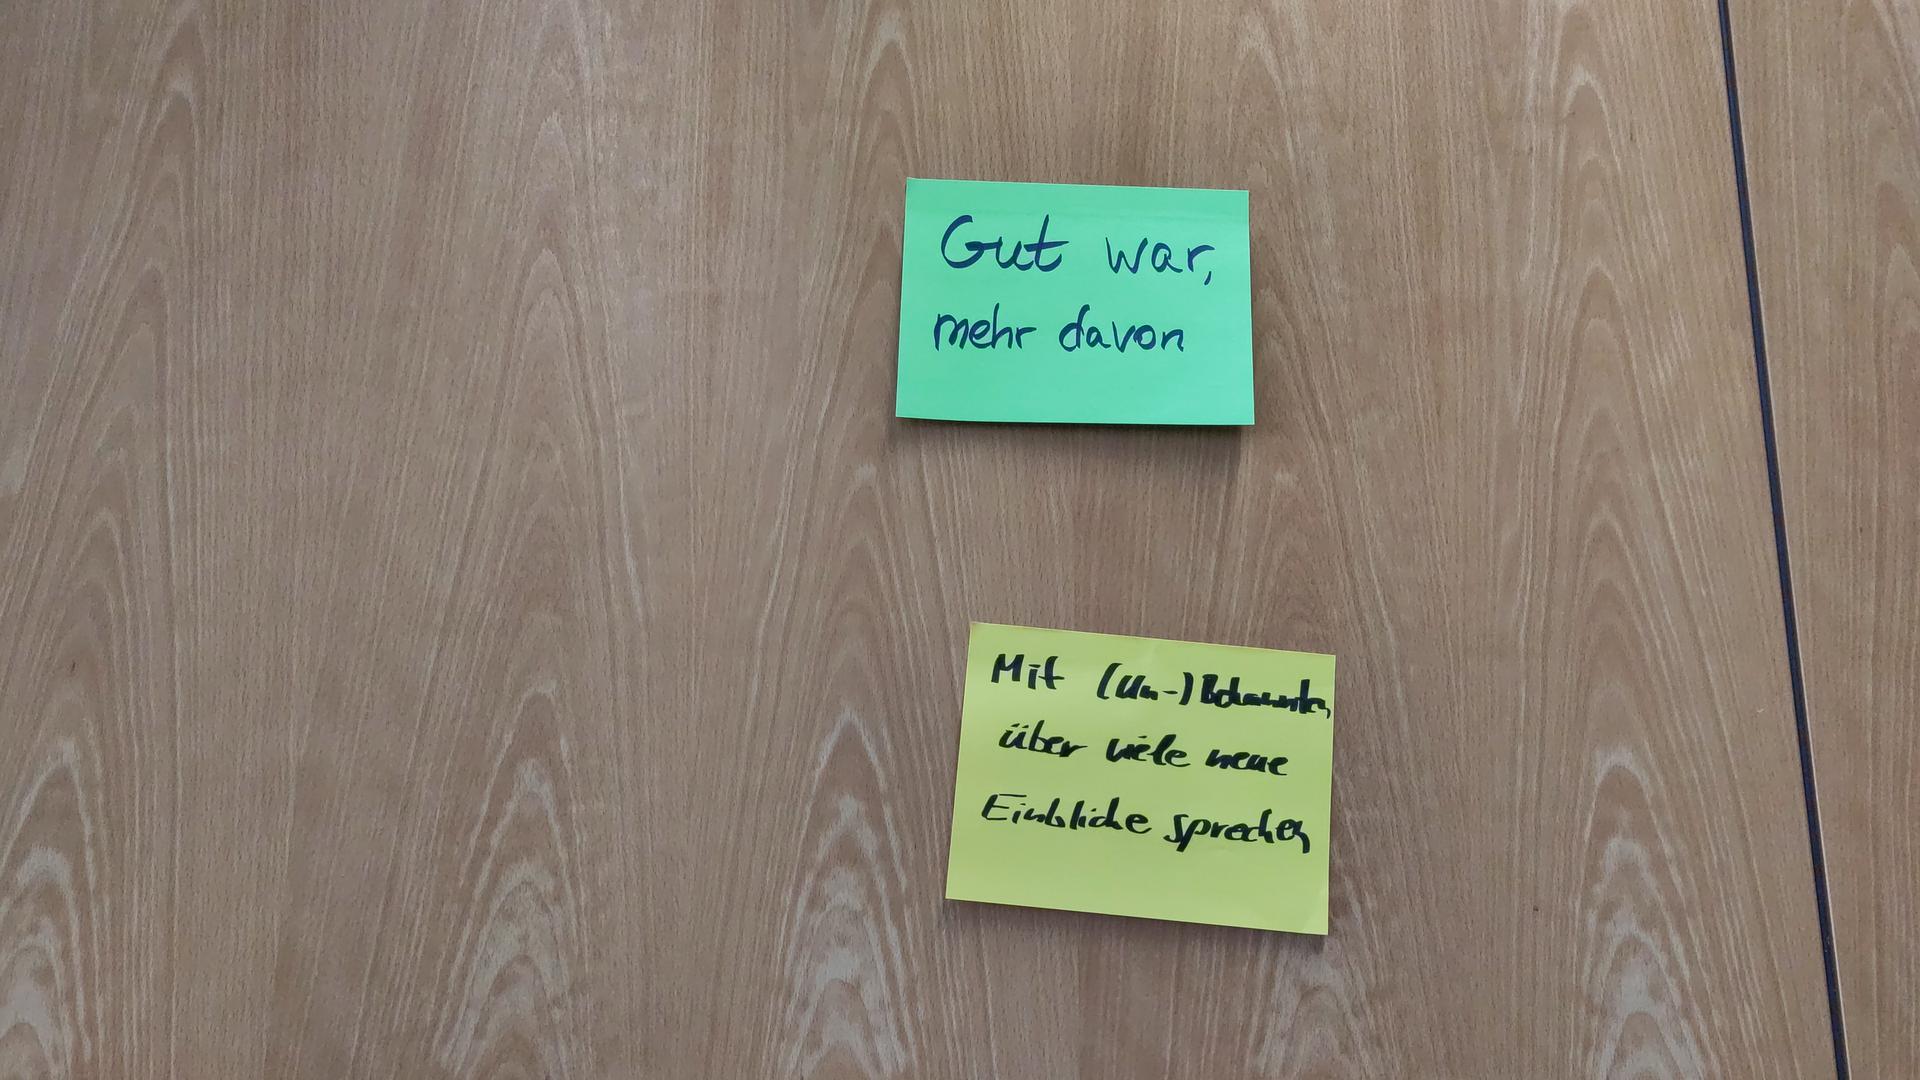 Gut war,
mehr davon
Mit (Un-) Bekannten
über viele neue
Einblicke sprechen